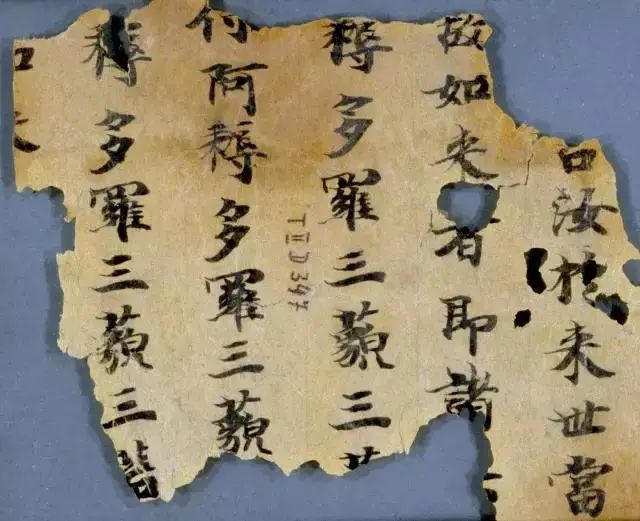 汝於来世當
故如来者即諸
耨多羅三藐三
阿耨多羅三藐
耨多羅三藐三菩
T II D 347